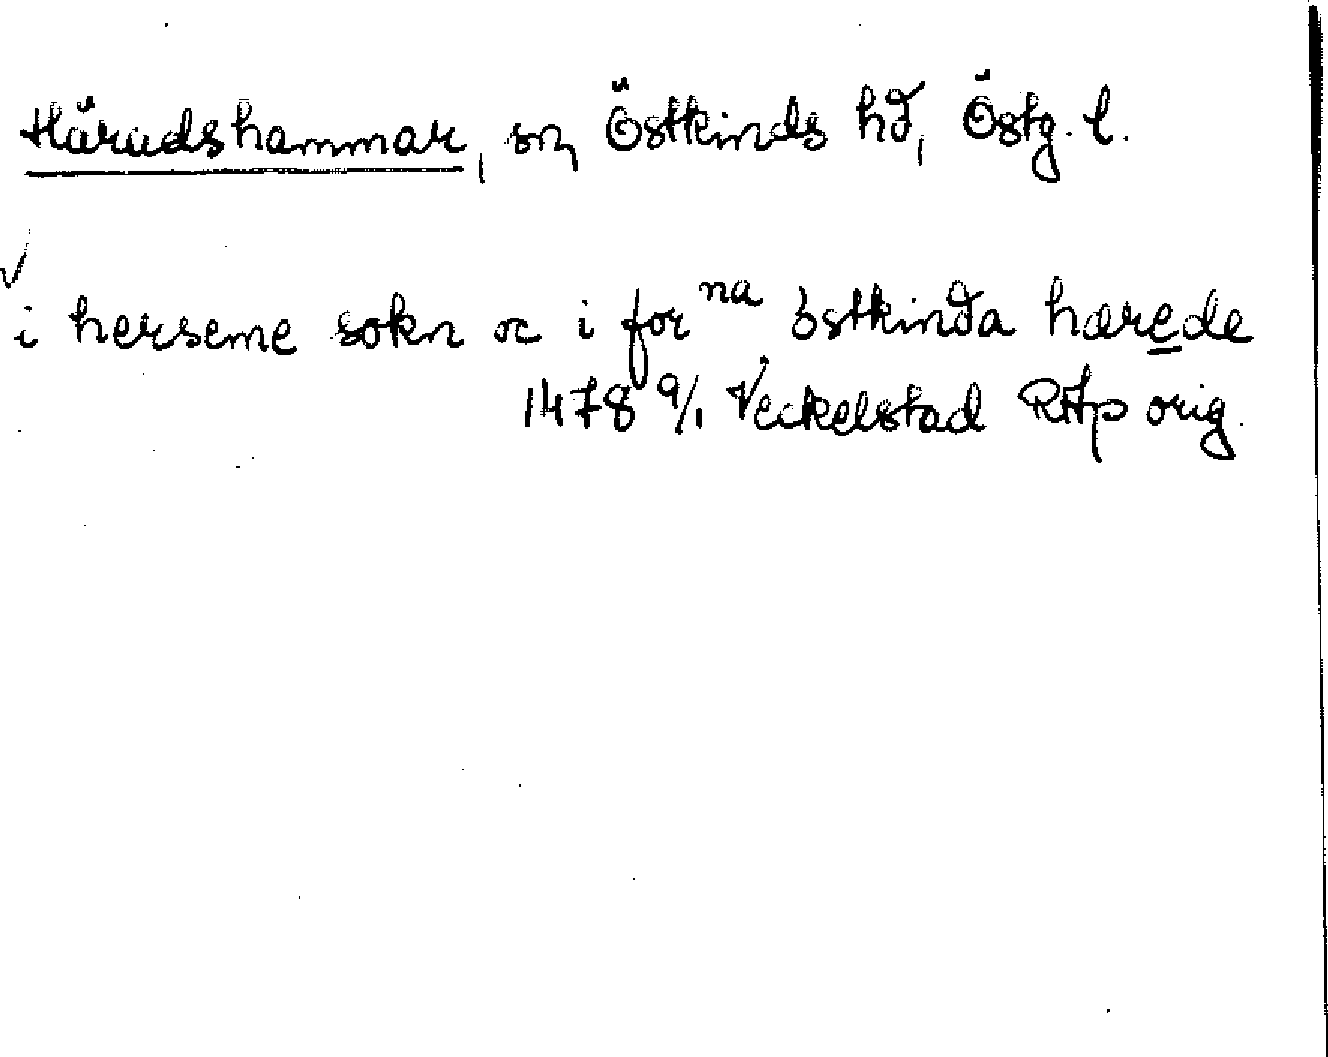 Häradshammar, sn, Östkinds hd, Östg. l.
i herseme sokn oc i for na östkinda hærede
1478 9/1 Veckelstad RAp orig.